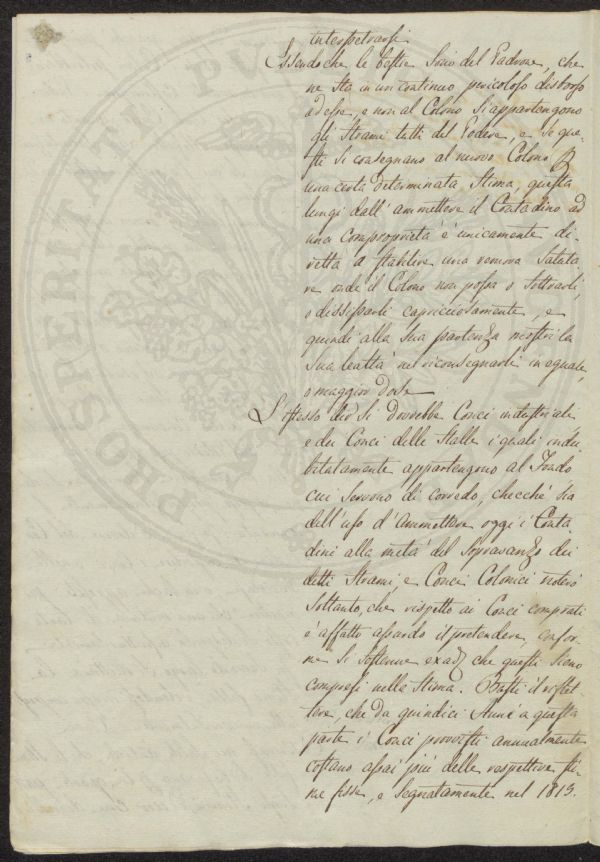 interpetrarli.
Essendo che le Bestie sono del Padrone, che
ne sta in un continuo pericoloso disborso
ad esse, e non al Colono si appartengono
gli Strami tutti del Podere, e se que-
sti si consegnano al nuovo Colono p
una certa determinata Stima, questa
lungi dall' ammettere il Contadino ad
una comproprietà è unicamente di-
retta a stabilire una remora
onde il Colono non possa o sottrarli,
o dissiparli capricciosamente, e
quindi alla sua partenza mostri la
sua lealtà nel riconsegnarli in eguale,
o maggior dose
L'istesso dir si dovrebbe Conci industriali
e dei Conci delle Stalle i quali indu
bitatamente appartengono al Fondo
cui servono di corredo, checchè sia
dell'uso d'ammettere oggi i Conta
dini alla metà del Sopravanzo dei
detti Strami, e Conci Colonici noterò
soltanto, che rispetto ai Conci comprati
è affatto assurdo il pretendere, confor-
me si sostenne che questi sieno
compresi nella Stima. Basti il riflet
tere, che da quindici Anni a questa
parte i Conci provvisti annualmente
costano assai più delle respettive sti-
me fisse, e segnatamente nel 1815.
PROSPERITATI PU